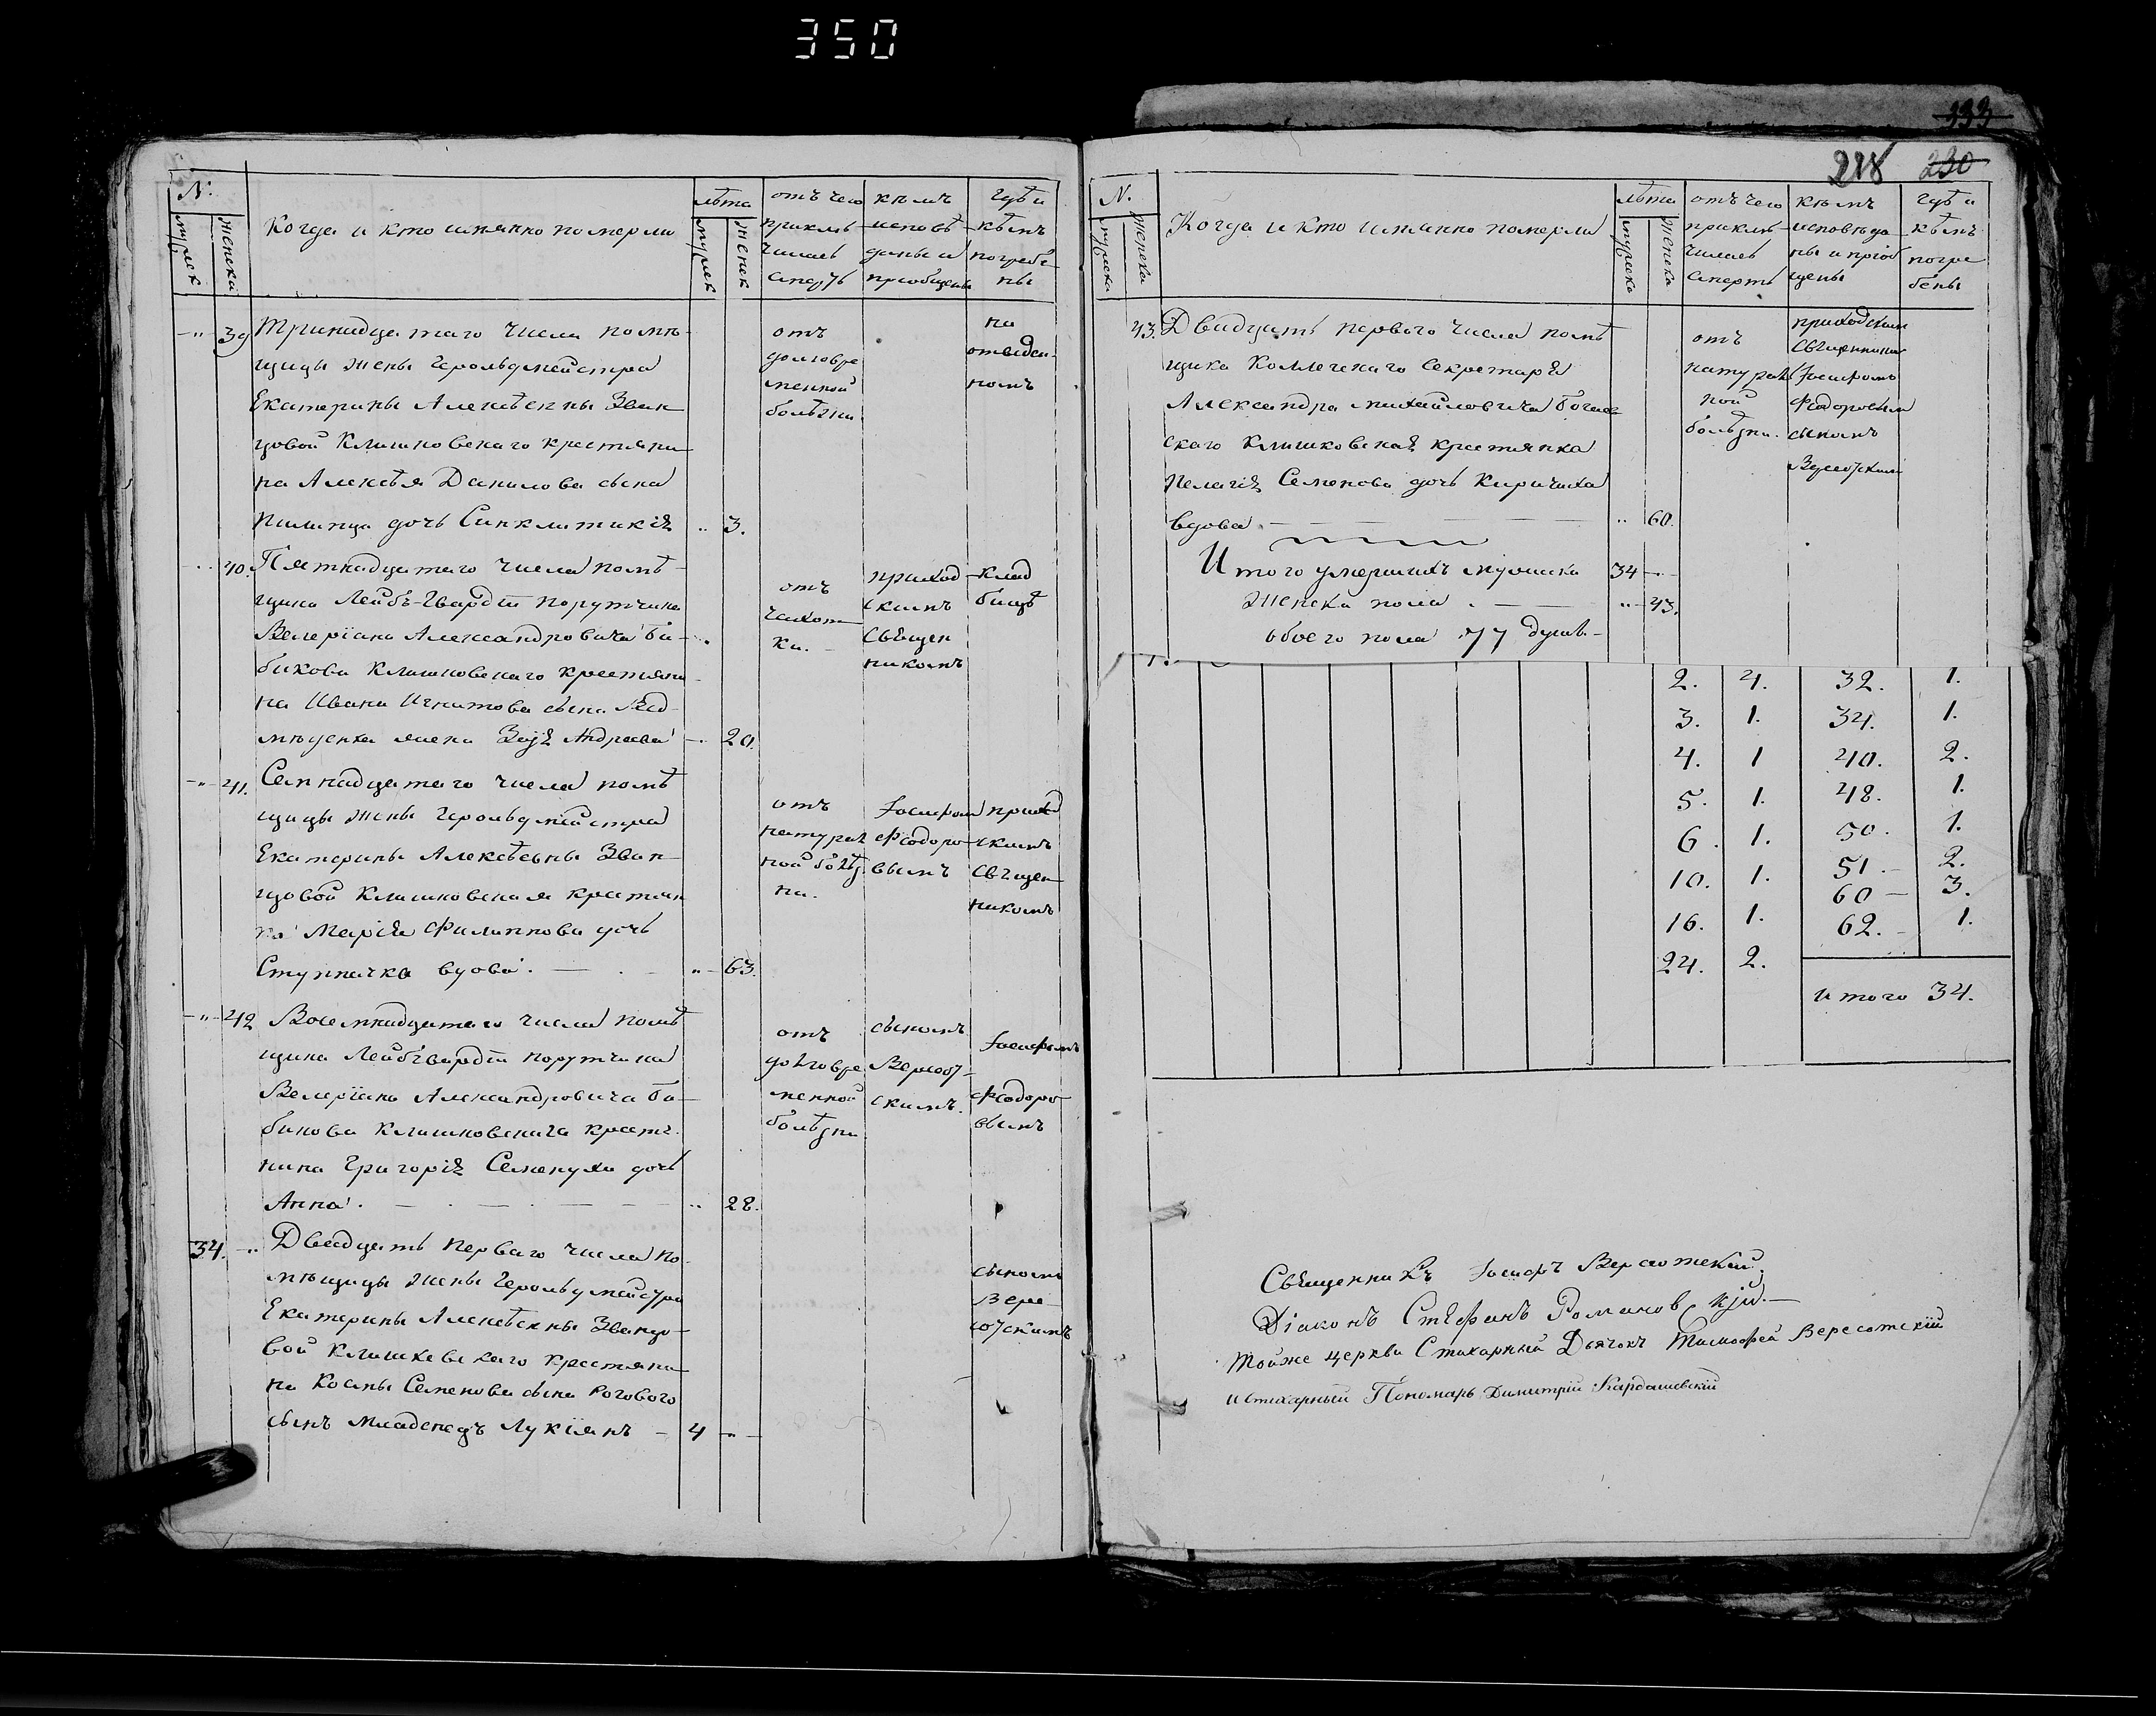 350
333
218 230
N:
мужск
женски
Когда и кто имянно померли
лѣта
мужск
женск
отъ чего
приклю-
чилась
смерть
кѣмъ
исповѣ-
даны и
приобщены
гдѣ и
кѣмъ
погребе
ны
39 Тринадцатаго числа помѣ-
щицы жены Герольдмейстра
Екатерины Алексѣевны Зван-
цовой Клишковскаго крестяни-
на Алексѣя Данилова сына
дочь Синклитикія .. 3.
отъ
долговре
менной
болѣзни
на
отведен-
номъ
40. Пятнадцатаго числа помѣ-
щика Лейбъ-Гвардіи порутчика
Валеріана Александровича Би-
бикова Клишковскаго крестяни-
на Ивана Игнатова сына
жена Андреева 20.
отъ
чахот
ки.
приход
скимъ
священ
никомъ
клад
бищѣ
41. Семнадцатаго числа помѣ
щицы жены Герольдмейстра
Екатерины Алексѣевны Зван-
цовой Клишковская крестян
ка Марія Филиппова дочь
вдова. 63.
отъ
натурал
ной болѣз
ни.
Іосифомъ
Феодоро-
вымъ
приход
скимъ
священ
никомъ
42 Восемнадцатаго числа помѣ
щика Лейбгвардіи порутчика
Валеріана Александровича Би-
бикова Клишковскаго крестя
нина Григорія Семенухи дочь
Анна. 28.
отъ
долговре
менной
болѣзни
сыномъ
Вересот-
скимъ.
Іосифомъ
Феодоро
вымъ
34. Двадцать перваго числа по-
мѣщицы жены Герольдмейстра
Екатерины Алексѣевны Званцо-
вой Клишковскаго крестяни-
на Космы Семенова сына Рогового
сынъ младенецъ Лукіянъ - 4
сыномъ
Вере
сотскимъ
N.
мужска
женска
Когда и кто имянно померли
лѣта
мужска
женска
отъ чего
приклю-
чилась
смерть
кѣмъ
исповѣда
ны и пріоб
щены
гдѣ и
кѣмъ
погре
бены
43. Двадцать перваго числа помѣ
щика Коллегскаго Секретаря
Александра Михайловича
Клишковская крестянка
Пелагія Семенова дочь Киричиха
вдова. .. 60.
отъ
натурал
ной
болѣзни.
приходскимъ
Священникомъ
Іосифомъ
Феодоровымъ
сыномъ
Вересотскимъ
Итого умершихъ мужска 34
Женска пола .. 43.
обоего пола 77 душъ.
2. 4. 32. 1.
3. 1. 34. 1.
4. 1 40. 2.
5. 1. 48. 1.
6. 1. 50. 1.
10. 1. 51. 2.
60 3.
16. 1. 62. 1.
24. 2.
итого 34.
Священникъ Іосифъ Вересотскій.
Діаконъ Стефанъ Романовскій.
Тойже церкви Стихарный Дьячокъ Тимофей Вересотскій
и стихарный Пономарь Димитрій Кардашевскій